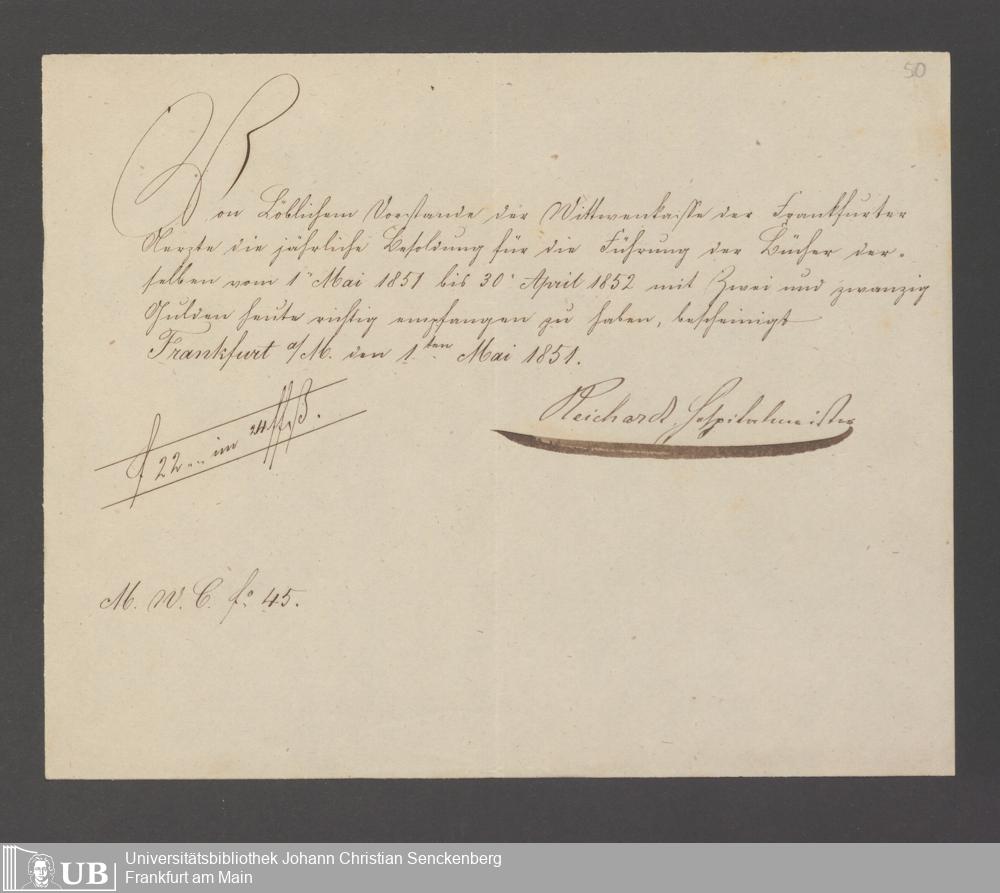 50
Von Löblichem Vorstande der Wittwenkasse der Frankfurter
Aerzte die jährliche Besoldung für die Führung der Bücher der-
selben vom 1n Mai 1851 bis 30n April 1852 mit Zwei und zwanzig
Gulden heute richtig empfangen zu haben, bescheinigt
Frankfurt a/M. den 1ten Mai 1851.
Reichard, Hospitalmeister
f 22 „ „ im 24 f
M. W. C. fo. 45.
UB
Universitätsbibliothek Johann Christian Senckenberg
Frankfurt am Main